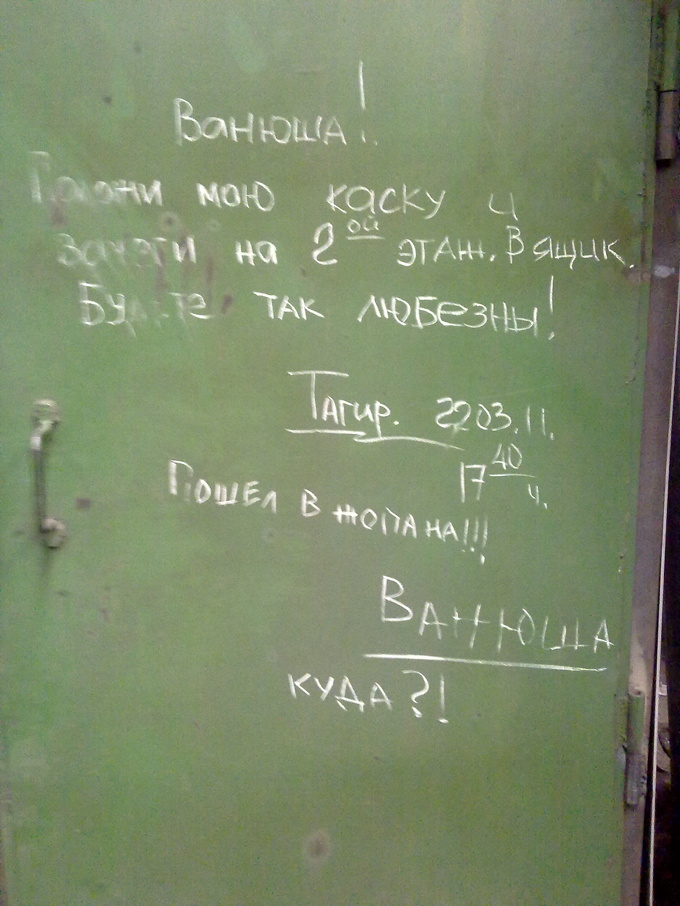 Ванюша!
Положи мою каску и
на 2ой этаж. В ящик.
Будьте так любезны!
Тагир. 22 03.11.
17 40 ч.
Пошел в жопа на!!!
Ванюша
куда?!